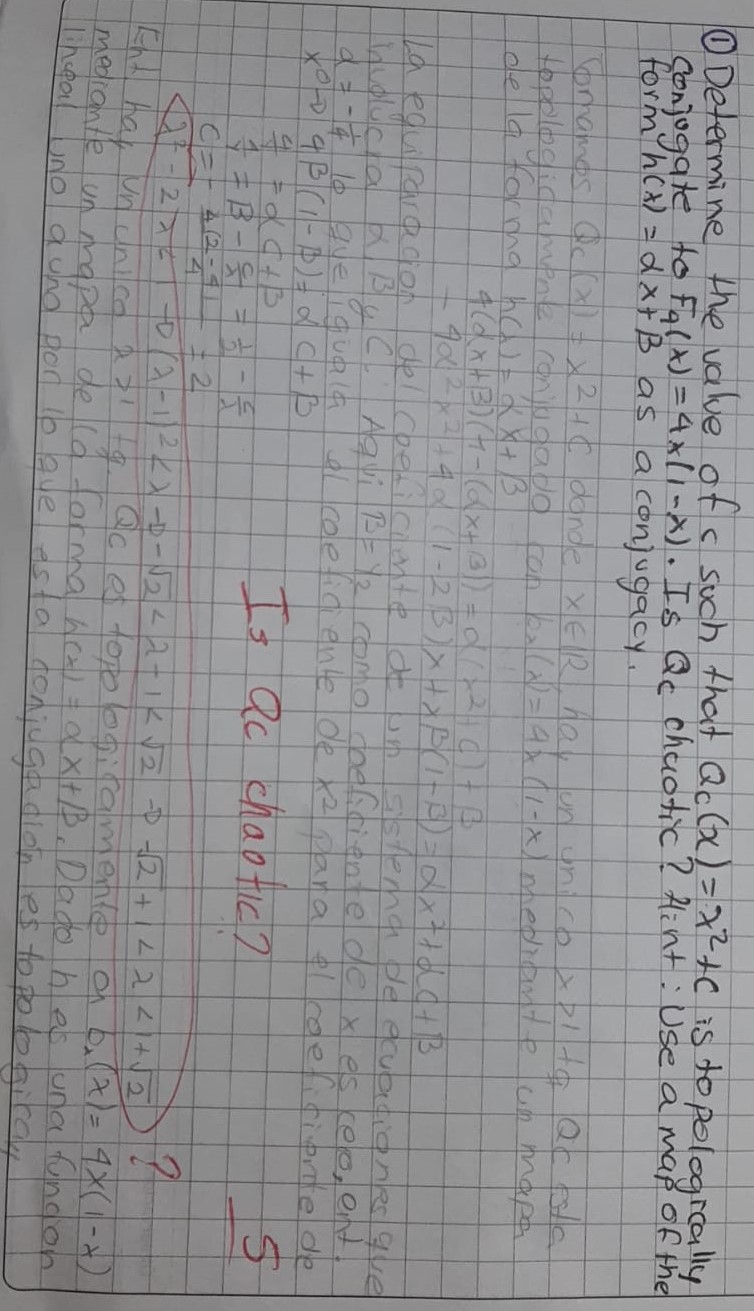 ① Determine the value of c such that Qc(x)=x²+c is topologically
conjugate to F4(x)=4x(1-x). Is Qc chaotic? Hint: Use a map of the
form h(x)=αx+β as a conjugacy.
Tomamos Qc(x)=x²+c donde x∈R, hay un unico x>1 tq Qc esta
topologicamente conjugado con bx(x)=4x(1-x) mediante un mapa
de la forma h(x)=αx+β
4(αx+β)(1-(αx+β))=α(x²+c)+β
-4α²x²+4α(1-2β)x+xβ(1-β)=αx²+αc+β
La equiparacion del coeficiente de un sistema de ecuaciones que
involucra α β y C. Aqui β=1/2 como coeficiente de x es cero, ent.
α=-1/4 lo que iguala el coeficiente de x² para el coeficiente de
x⁰→ 4β(1-β)=αC+β
4/4=αC+β
4/4=β-c/4=1/2-c/4
Is Qc chaotic? 5
λ²-2λ+1→(λ-1)²<λ→-√2<λ-1<√2→-√2+1<λ<1+√2 ?
Ent hay un unico λ>1 tq Qc es topologicamente a bx(x)=4x(1-x)
mediante un mapa de la forma h(x)=αx+β. Dado h es una funcion
lineal uno a uno por lo que esta conjugación es topologica